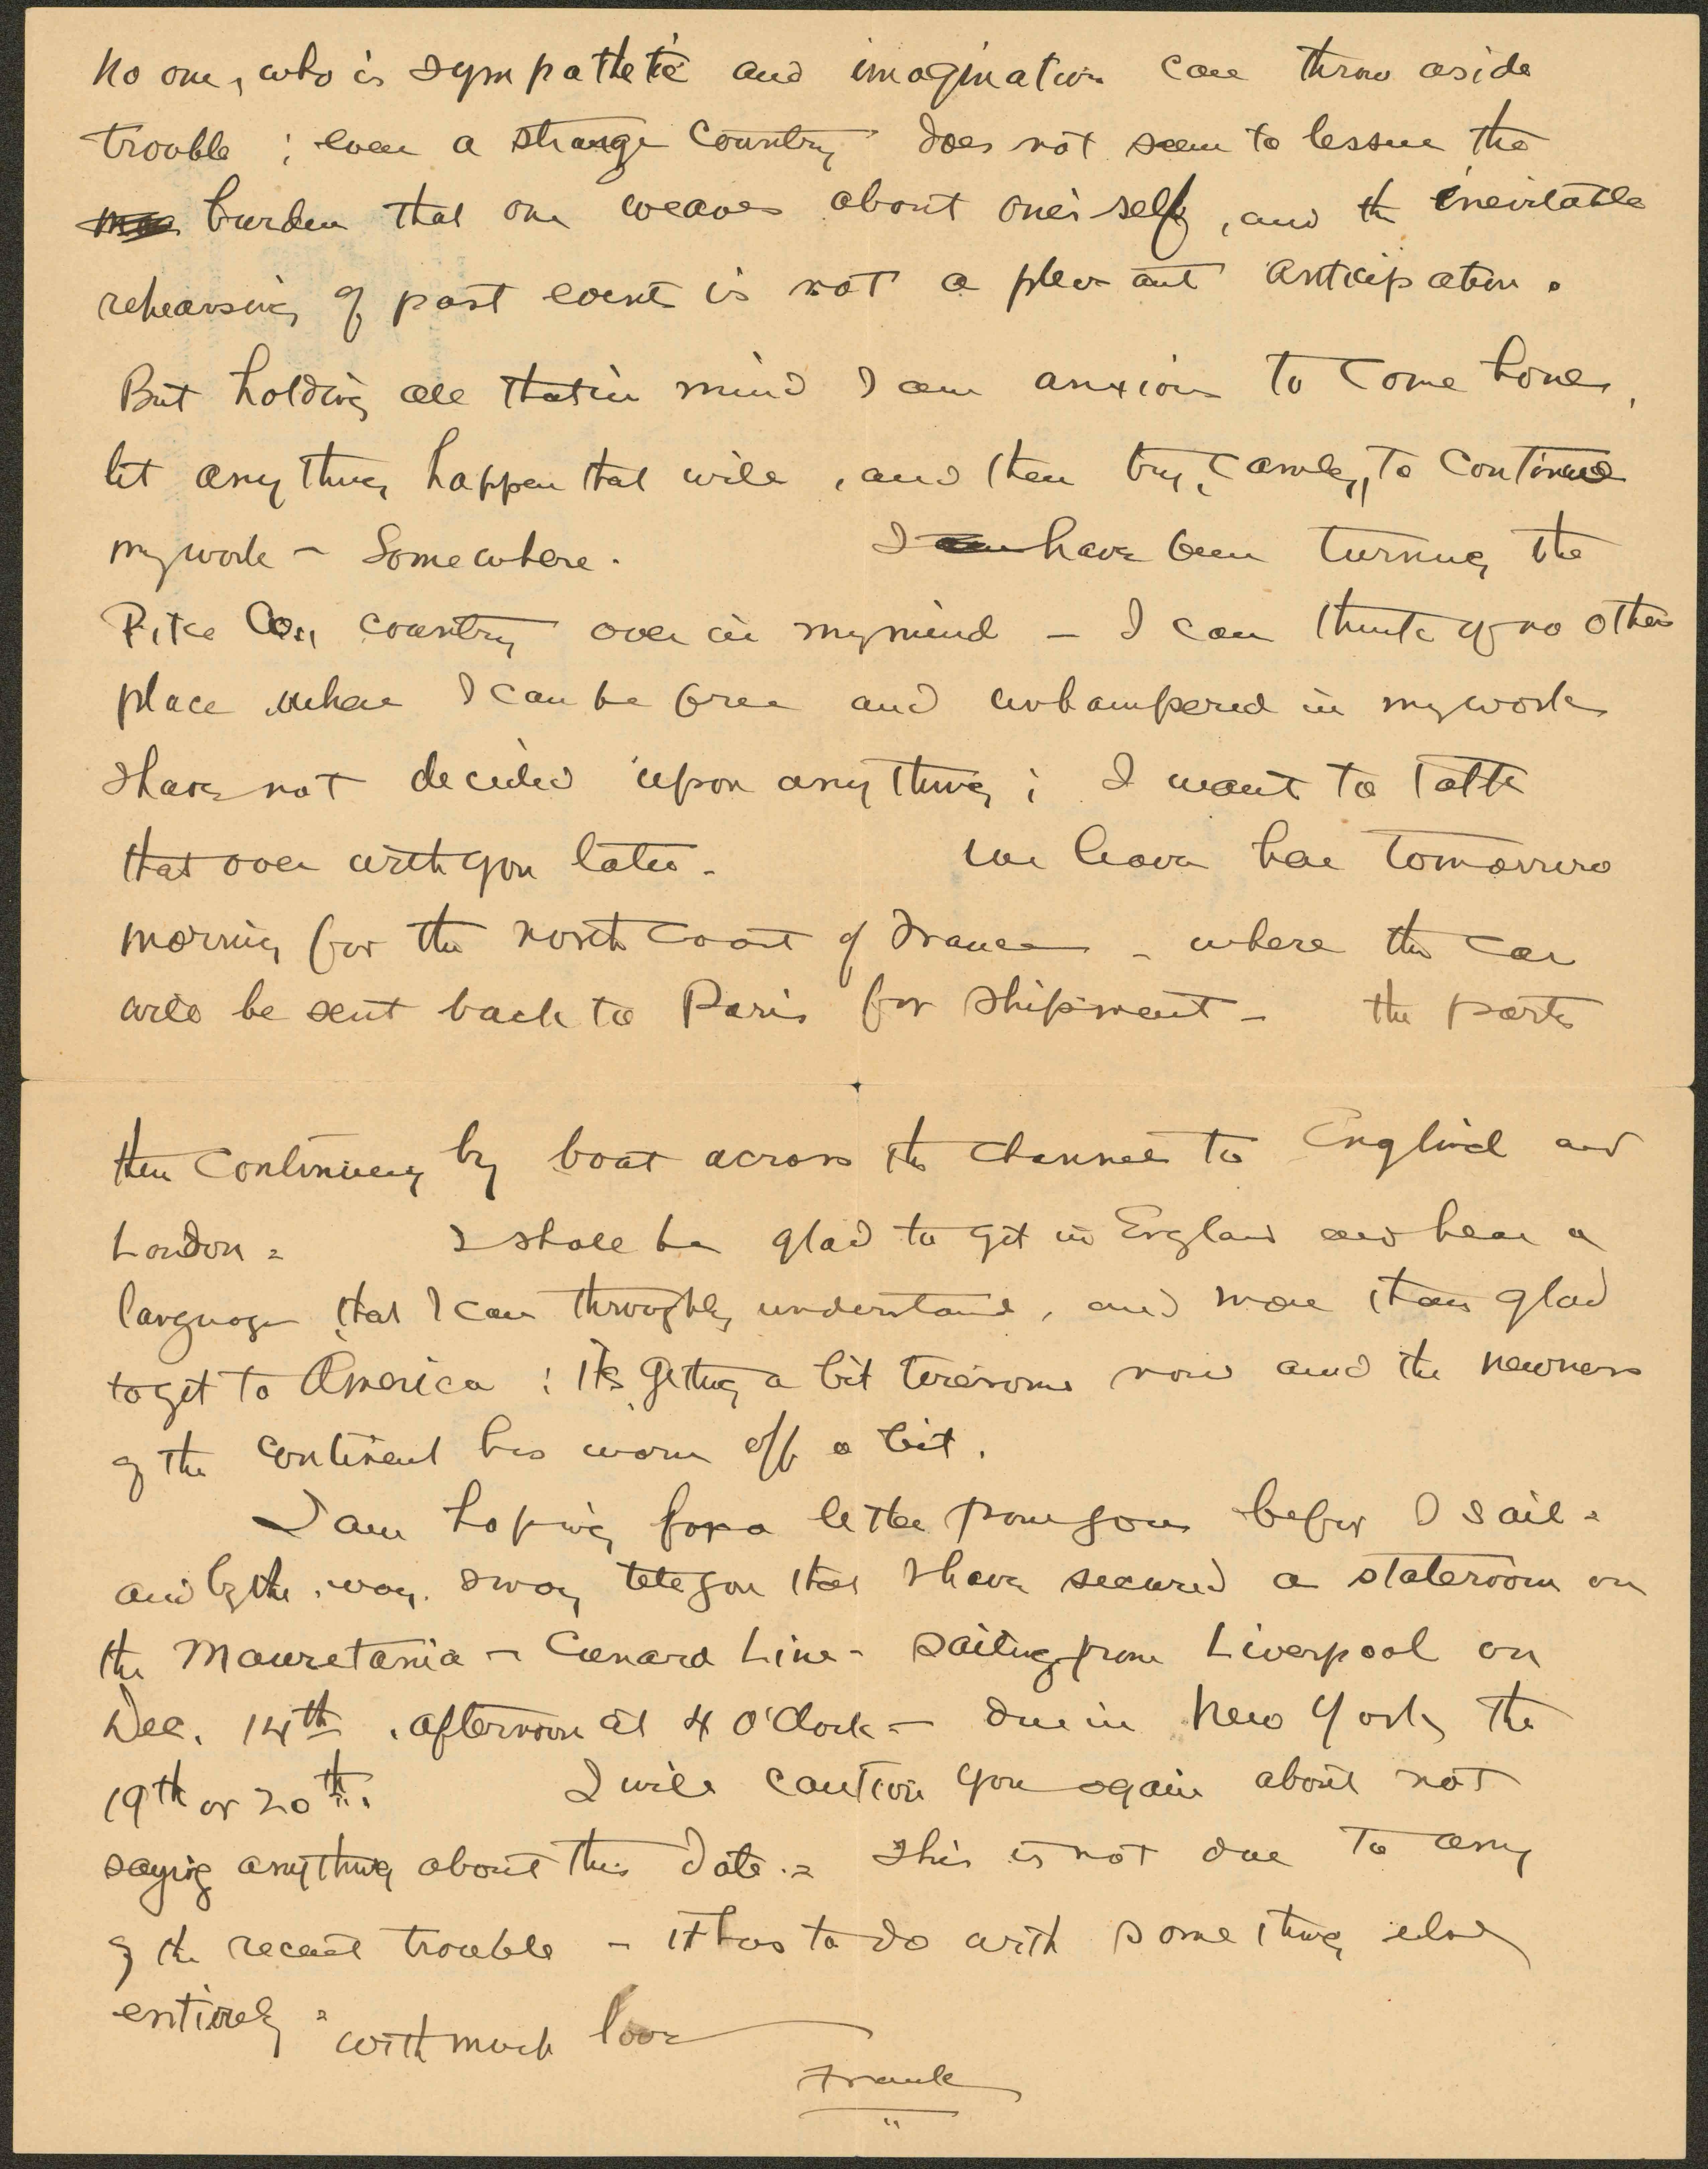 No one, who is sympathetic and imaginative can throw aside
trouble ; even a strange country does not seem to lessen the
burden that one weaves about one's self, and the inevitable
rehearsing of past events is not a pleasant anticipation.
But holding all that in mind I am anxious to come home,
let anything happen that will, and then try, calmly, to continue
my work – Somewhere. I have been turning the
Pike Co., country over in my mind – I can think of no other
place where I can be free and unhampered in my work
I have not decided upon anything ; I want to talk
that over with you later. We leave here tomorrow
morning for the north coast of France – where the car
will be sent back to Paris for shipment – the party
then continuing by boat across the channel to England and
London = I shall be glad to get in England and hear a
language that I can throughly understand, and more than glad
to get to America : Its getting a bit tiresome now and the newness
of the continent has worn off a bit.
I am hoping for a letter from you before I sail =
and by the way. I may tell you that I have secured a stateroom on
the Mauretania – Cunard Line – sailing from Liverpool on
Dec. 14th. afternoon at 4 O'Clock – due in New York the
19th or 20th. I will caution you again about not
saying anything about this date. = This is not due to any
of the recent trouble – it has to do with something else
entirely = with much love
Frank